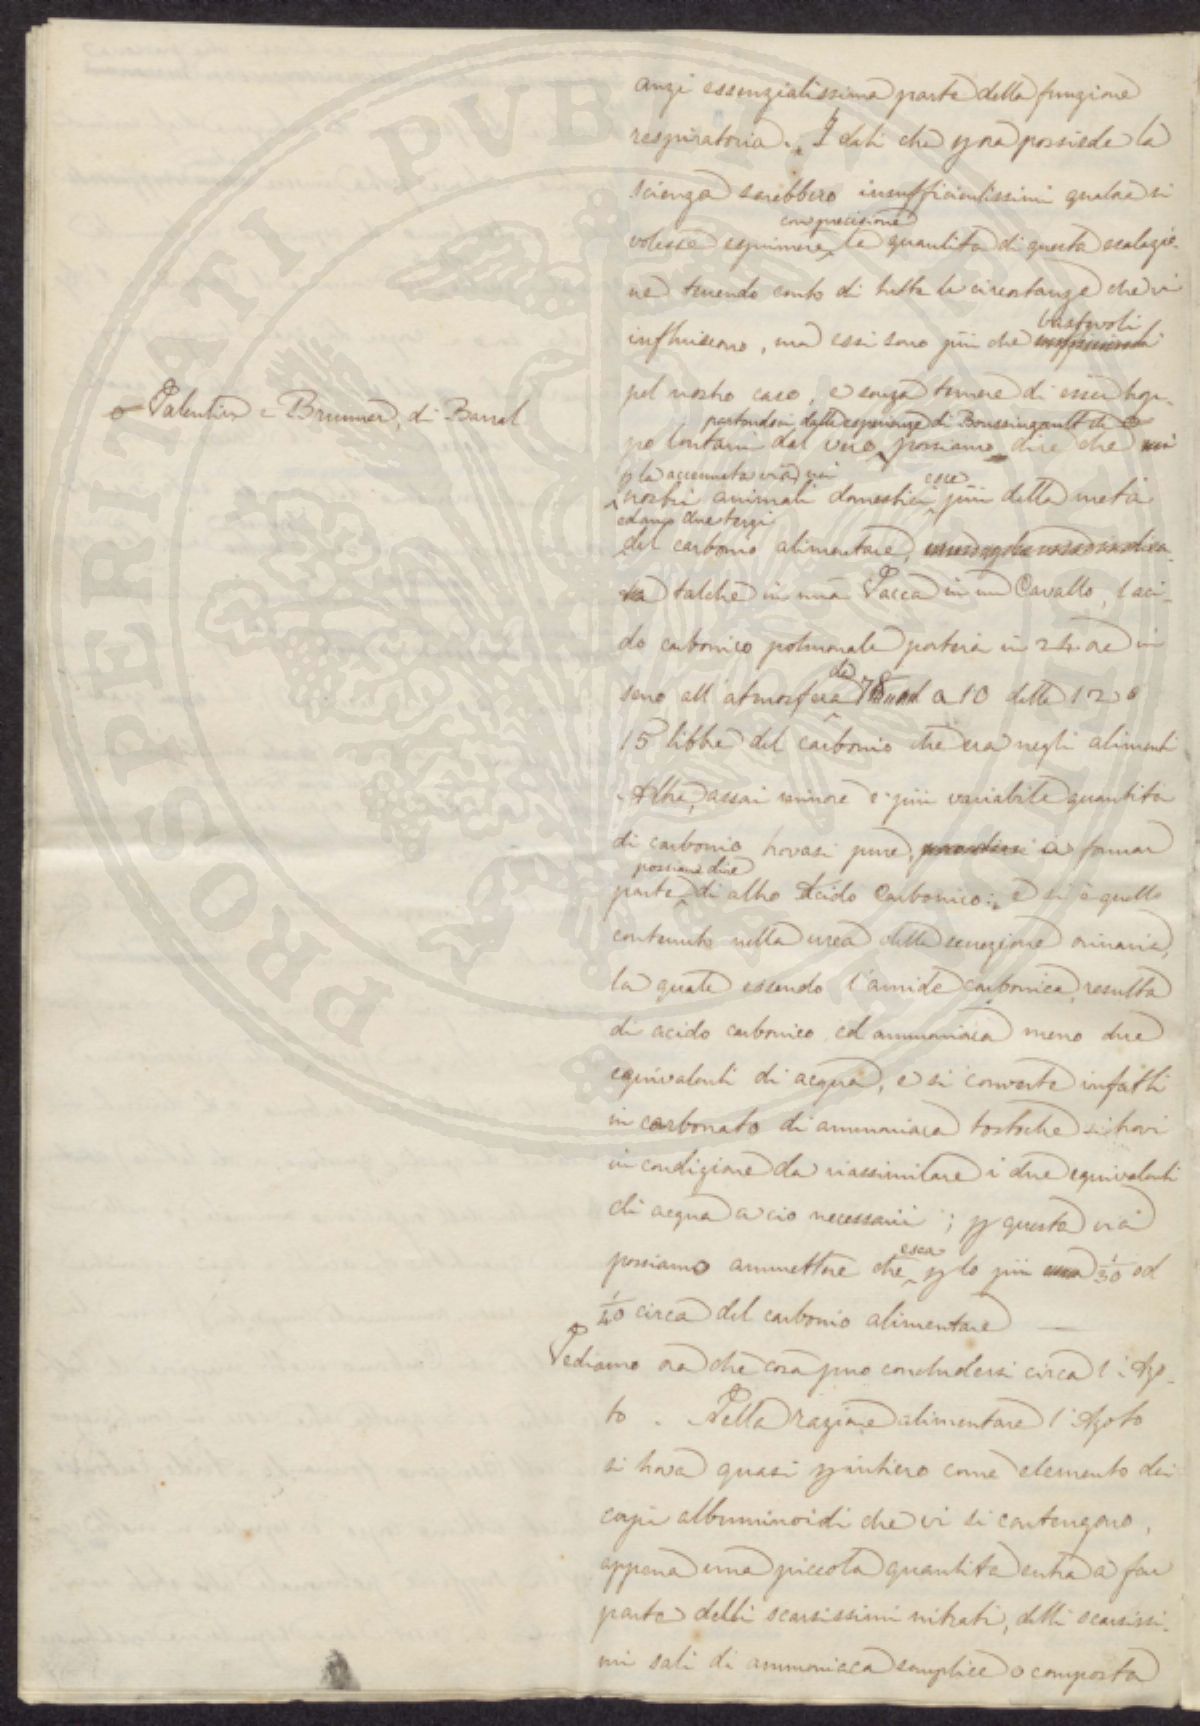 anzi essenzialissima parte della funzione
respiratoria. I dati che pora possiede la
scienza sarebbero insufficientissimi qualora si
con precisione
volesse esprimere le quantità di questa esalazio-
ne tenendo conto di tutte le circostanze che vi
bastevoli
influiscono, ma essi sono più che
pel nostro caso, e senza temere di esser trop-
o Valentin e Brunner, di Barral
partendosi dalle esperienze di Boussingault di o
po lontani dal vero possiamo dire che nei
p la accennata via nei esce
nostri animali domestici più della metà
ed anco due terzi
del carbonio alimentare,
talchè in una Vacca in un Cavallo, l'aci-
do carbonico polmonale porterà in 24. ore in
da
seno all'atmosfera 78 a 10 delle 12 o
15 libbre del carbonio che era negli alimenti
Altra, assai minore e più variabile quantità
di carbonio trovasi pure, a formar
possiamo dire
parte di altro Acido Carbonico: e si è quello
contenuto nella urea della secrezione orinaria,
la quale essendo l'amide carbonica, resulta
di acido carbonico ed ammoniaca meno due
equivalenti di acqua, e si converte infatti
in carbonato di ammoniaca tostochè si trovi
in condizione da riassimilare i due equivalenti
di acqua a ciò necessarii; p questa via
esca
possiamo ammettere che p lo più 1/30 od
1/40 circa del carbonio alimentare —
Vediamo ora che cosa può concludersi circa l'Azo-
to. Nella razione alimentare l'Azoto
si trova quasi p intiero come elemento dei
corpi albuminoidi che vi si contengono,
appena una piccola quantità entra a far
parte delli scarsissimi nitrati, delli scarsissi-
mi sali di ammoniaca semplice o composta
PROSPERITATI PVBLICAE